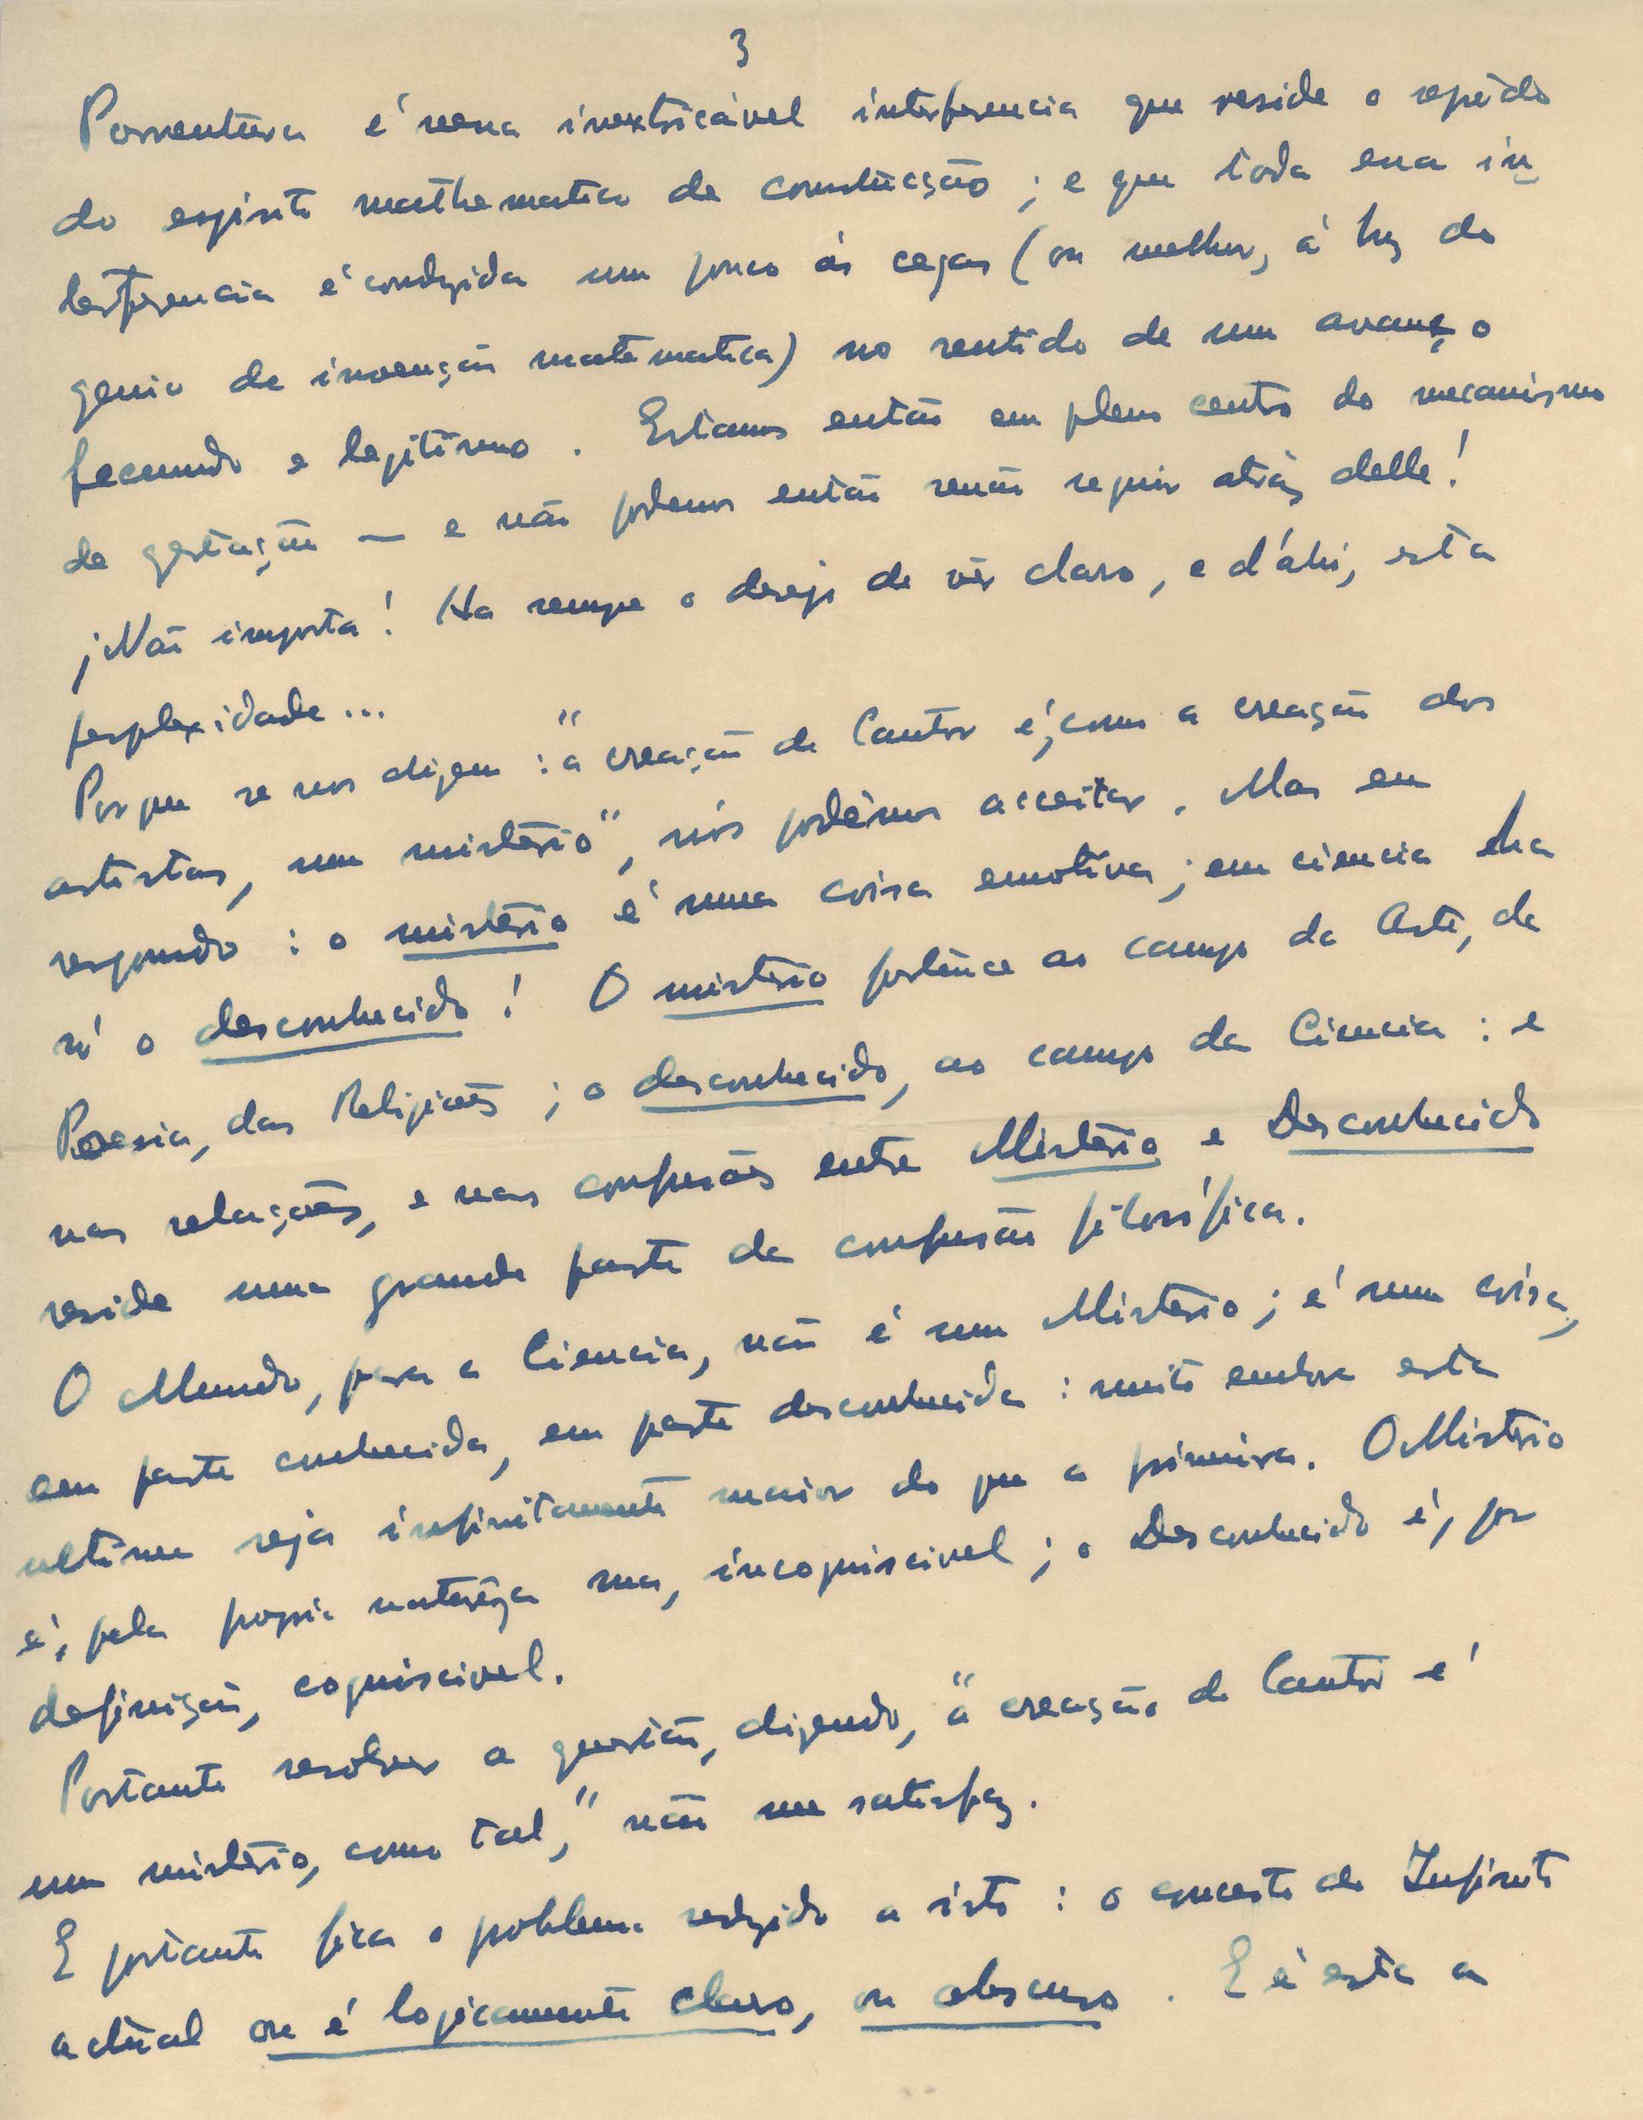 3
Porventura é nessa inextricável interferencia que reside o segrêdo
do espirito mathematico de construcção; e que toda essa in
terferencia é conduzida um pouco ás cegas (ou melhor, á luz do
genio de invenção matematica) no sentido de um avanço
fecundo e legitimo. Estamos então em pleno centro do mecanismo
de gestação — e não podemos então senão seguir atrás delle!
¡Não importa! Ha sempre o desejo de vêr claro, e d'ahi, esta
perplexidade...
Porque se nos dizem: "a creação de Cantor é, como a creação dos
artistas, um mistério", nós podêmos acceitar. Mas eu
respondo: o mistério é uma coisa emotiva; em ciencia ha
só o desconhecido! O mistério pertence ao campo da Arte, da
Poesia, das Religiões; o desconhecido, ao campo da Ciencia: e
nas relações, e nas confusões entre Mistério e Desconhecido
reside uma grande parte da confusão filosófica.
O Mundo, para a Ciencia, não é um Mistério; é uma coisa,
em parte conhecida, em parte desconhecida: muito embora esta
ultima seja infinitamente maior do que a primeira. O Mistério
é, pela propria naturêza sua, incogniscivel; o Desconhecido é, por
definição, cogniscivel.
Portanto resolver a questão, dizendo, "a creação de Cantor é
um mistério, como tal," não me satisfaz.
E portanto fica o problema reduzido a isto: o conceito do Infinito
actual ou é logicamente claro, ou obscuro. E é esta a